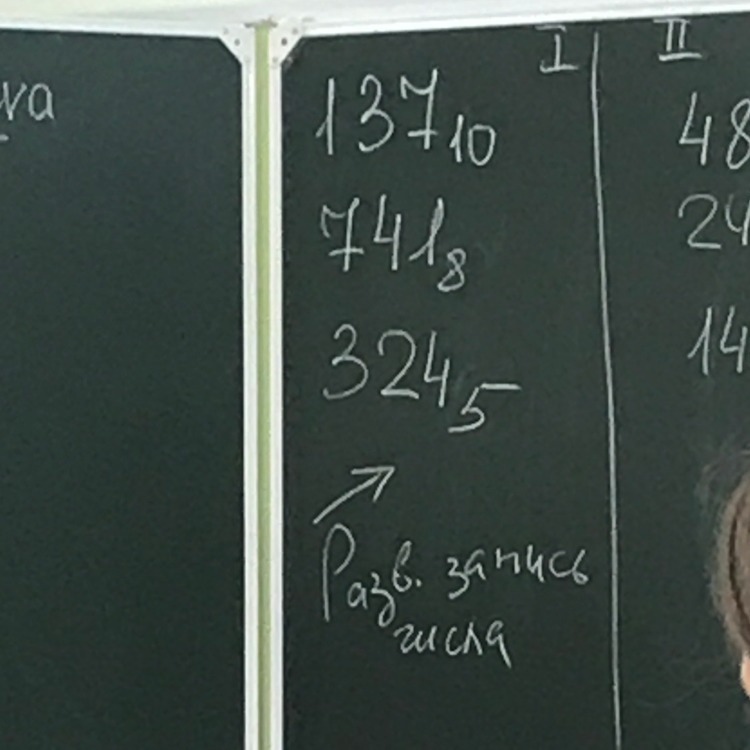 I
137₁₀
741₈
324₅
Разв. запись
числа
II
48
24
14